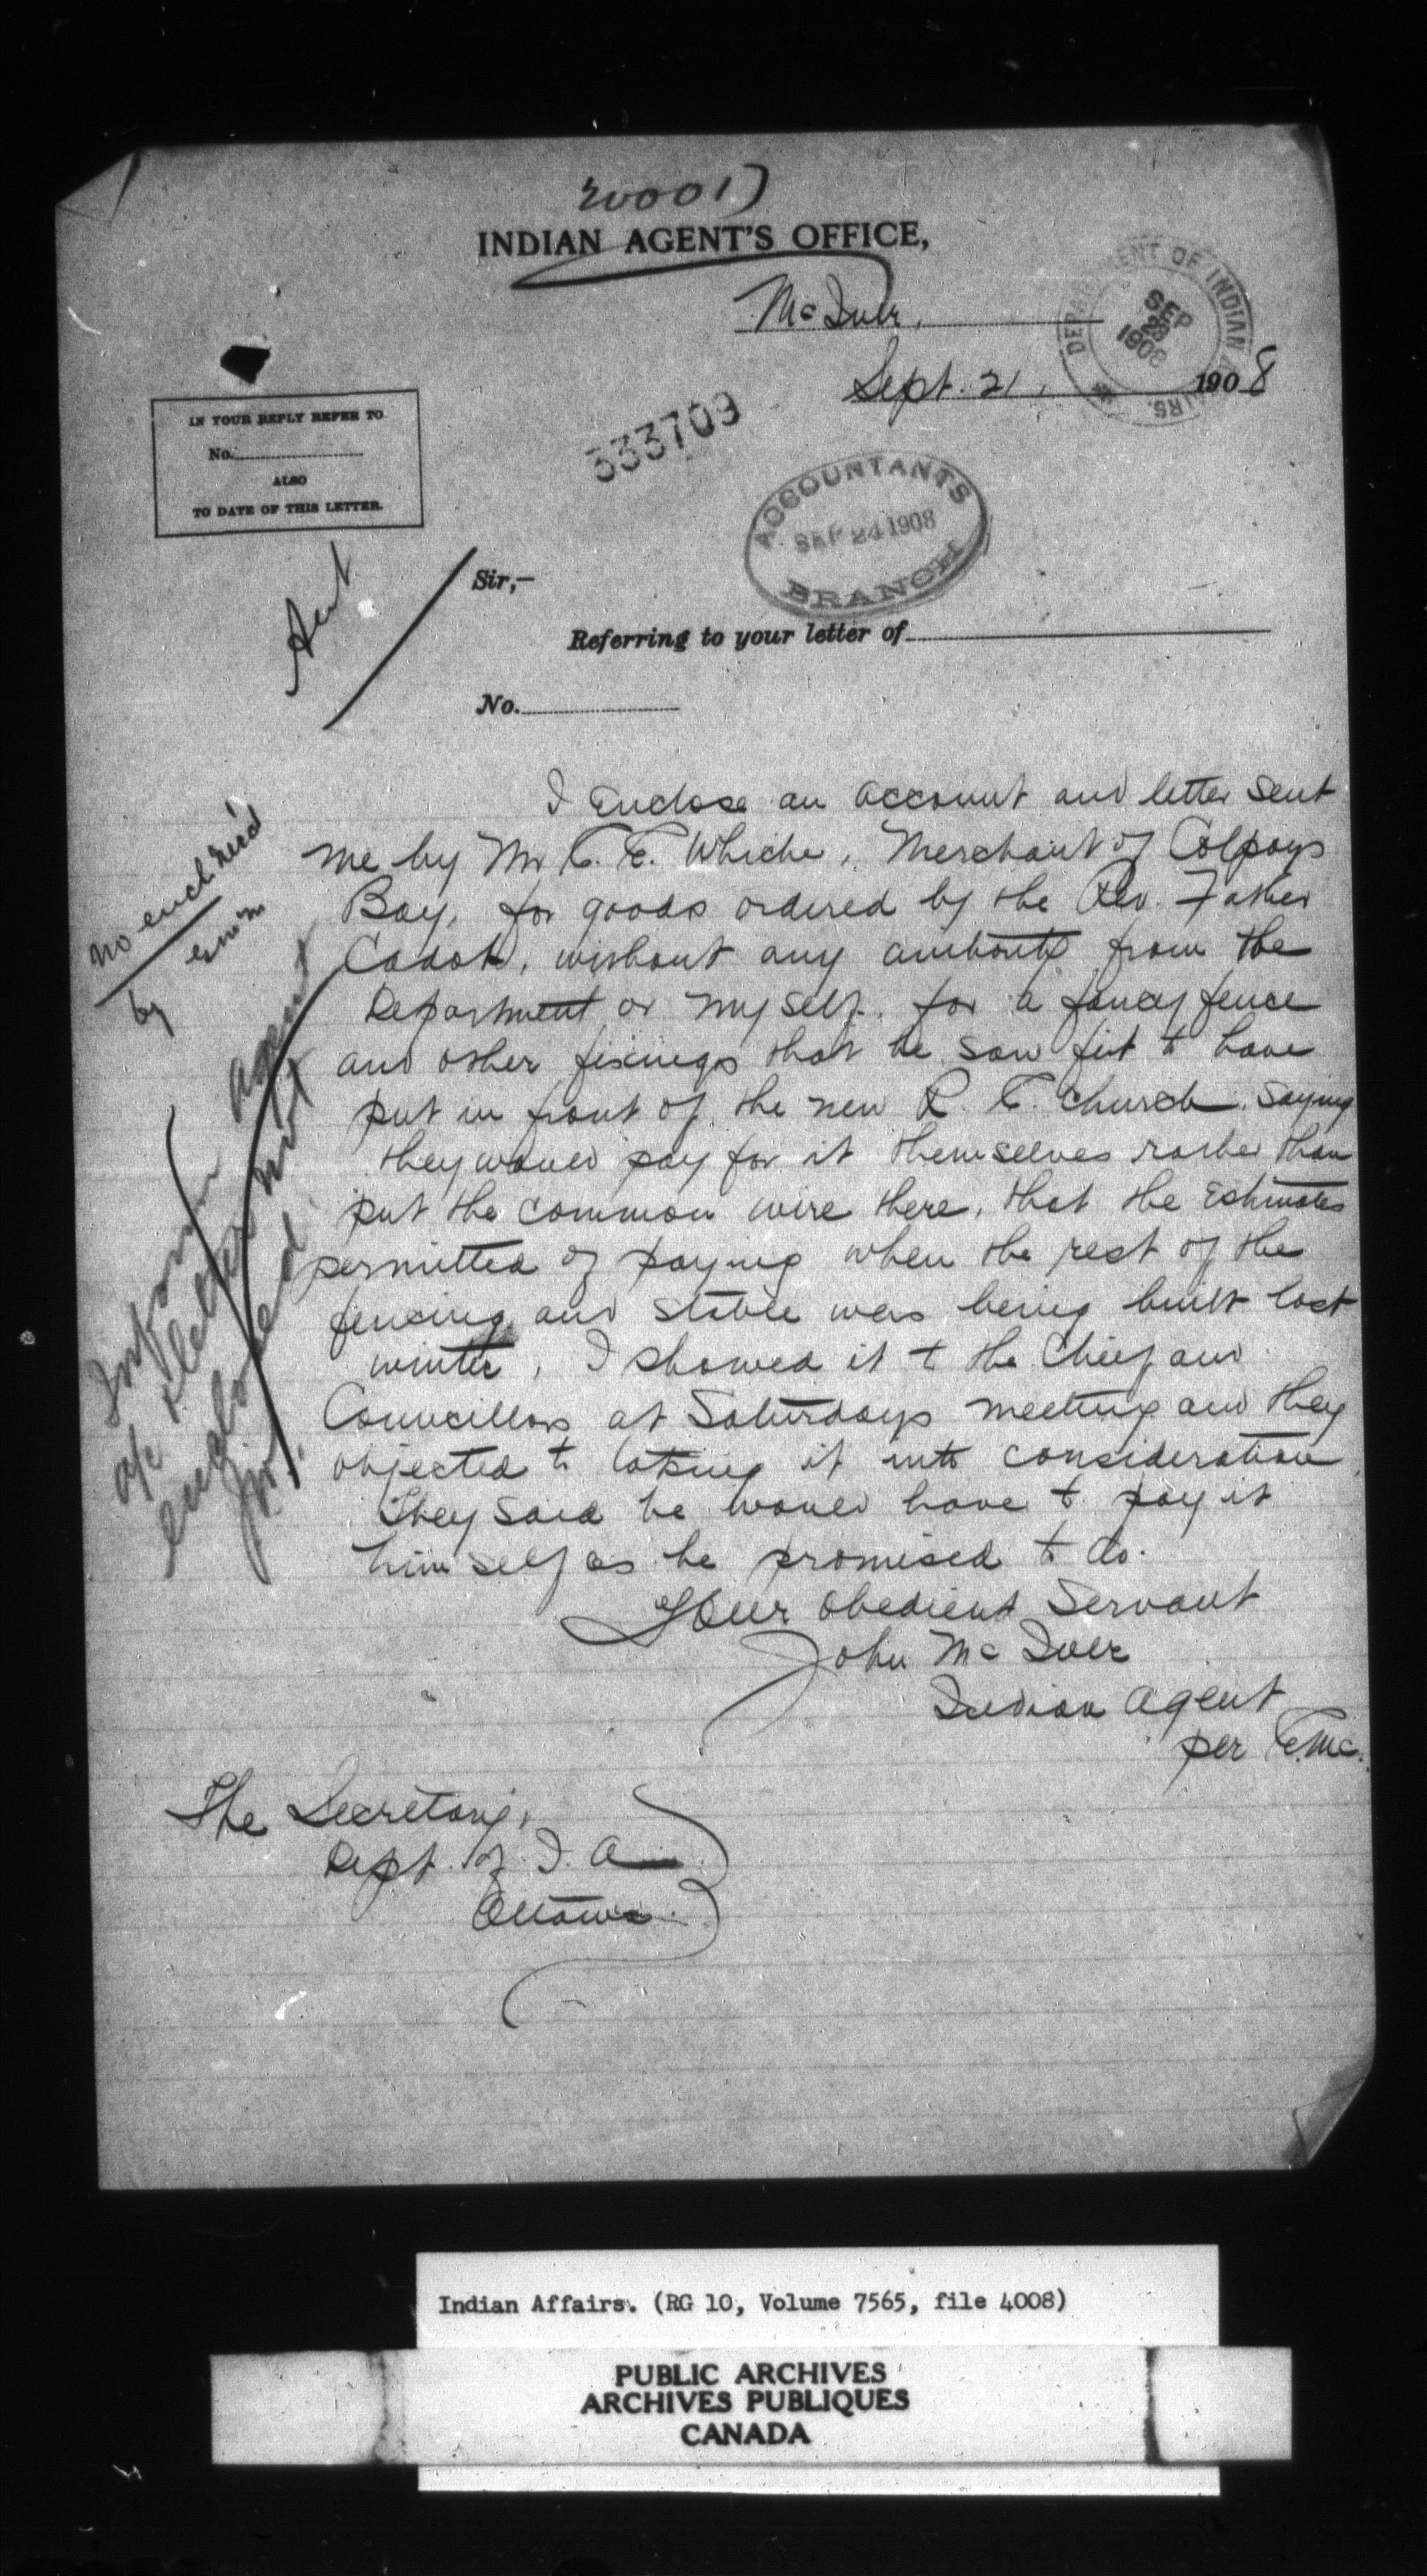 INDIAN AGENT'S OFFICE,
McIver,
Sept. 21, 1908
DEPARTMENT OF INDIAN AFFAIRS.
SEP 23 1908
IN YOUR REPLY REFER TO
No.
ALSO
TO DATE OF THIS LETTER.
333709
ACCOUNTANTS
SEP 24 1908
BRANCH
Sir,-
Referring to your letter of
No.
I Enclose an account and letter sent
me by Mr C. E. Whicher, Merchant of Colpoys
Bay, for goods ordered by the Rev. Father
Cadot, without any authority from the
Department or myself, for a fancy fence
and other fixings that he saw fit to have
put in front of the new R. C. Church, saying
they would pay for it themselves rather than
put the common wire there, that the Estimates
permitted of paying when the rest of the
fencing and stable was being built last
winter, I showed it to the Chief and
Councillors at Saturdays meeting and they
objected to taking it into consideration
They said he would have to pay it
himself as he promised to do.
Your obedient Servant
John McIver
Indian Agent
per C.Mc.
The Secretary,
Dept. of I. A.
Ottawa.
no encl rec'd
by
Inform agent
a/c & letter not
enclosed
Indian Affairs. (RG 10, Volume 7565, file 4008)
PUBLIC ARCHIVES
ARCHIVES PUBLIQUES
CANADA